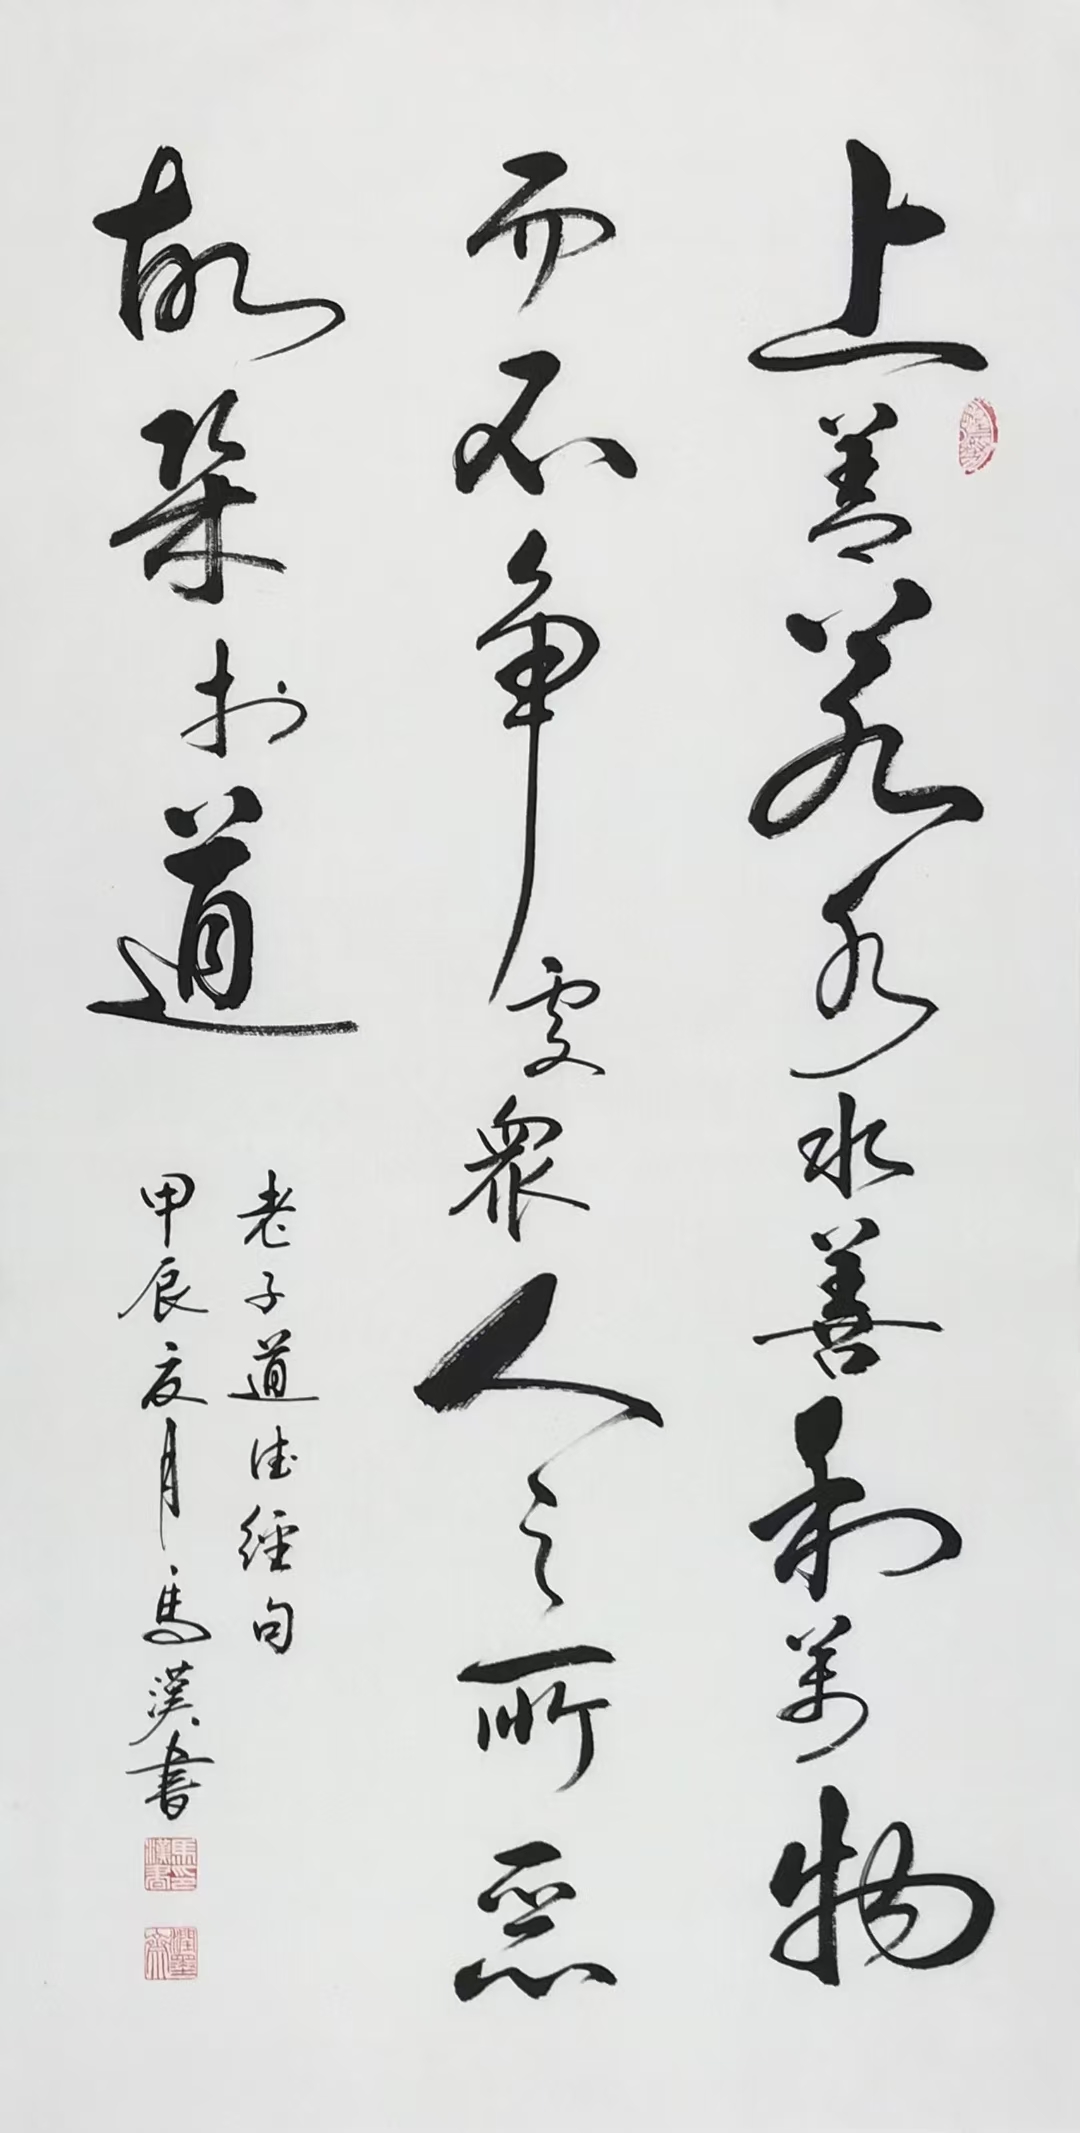 上善若水水善利萬物
而不争處衆人之所惡
故幾於道
老子道德經句
甲辰夏月馬漢書
馬印漢書
潤墨齋